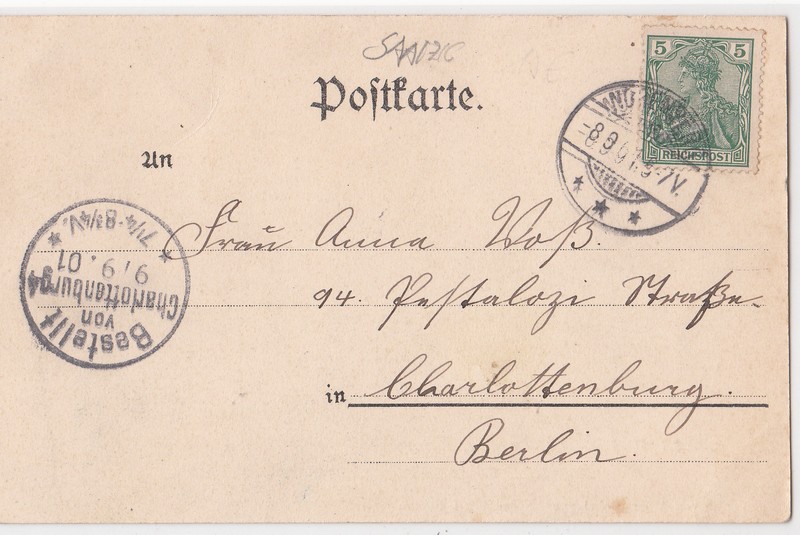 SAALZIG
Postkarte.
5 5
REICHSPOST
-8.9.01.
7V.
An
Frau Anna Voß.
94. Pestalozi Straße.
in Charlottenburg.
Berlin.
Bestellt
von
Charlottenburg 4
9/9.01
7¼-8¾V.